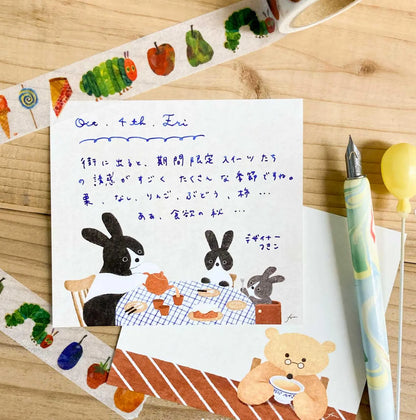 Oct. 4th. Fri
街に出ると、期間限定スイーツたち
の誘惑がすごく たくさんな季節ですね。
栗、なし、りんご、ぶどう、柿…
あぁ、食欲の秋…
デザイナー
つきこ